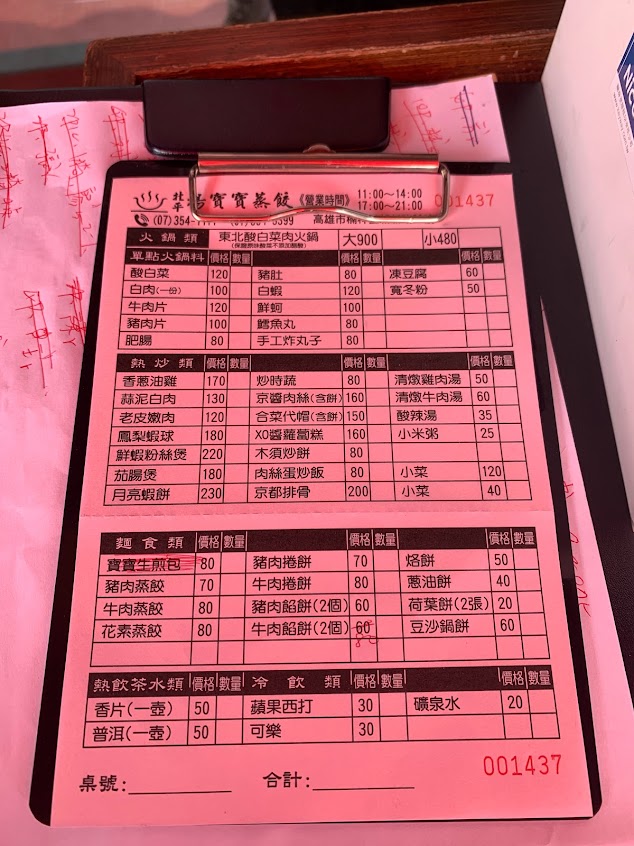 北平 寶寶蒸餃 《營業時間》 11:00～14:00
17:00～21:00 001437
(07)354- 高雄市楠梓
火鍋類 東北酸白菜肉火鍋 大900 小480
單點火鍋料 價格 數量 價格 數量 價格 數量
酸白菜 120 豬肚 80 凍豆腐 60
白肉(一份) 100 白蝦 120 寬冬粉 50
牛肉片 120 鮮蚵 100
豬肉片 100 鱈魚丸 80
肥腸 80 手工炸丸子 80
熱炒類 價格 數量 價格 數量 價格 數量
香蔥油雞 170 炒時蔬 80 清燉雞肉湯 50
蒜泥白肉 130 京醬肉絲(含餅) 160 清燉牛肉湯 60
老皮嫩肉 120 合菜代帽(含餅) 150 酸辣湯 35
鳳梨蝦球 180 XO醬蘿蔔糕 160 小米粥 25
鮮蝦粉絲煲 220 木須炒餅 80
茄腸煲 180 肉絲蛋炒飯 80 小菜 120
月亮蝦餅 230 京都排骨 200 小菜 40
麵食類 價格 數量 價格 數量 價格 數量
寶寶生煎包 80 豬肉捲餅 70 烙餅 50
豬肉蒸餃 70 牛肉捲餅 80 蔥油餅 40
牛肉蒸餃 80 豬肉餡餅(2個) 60 荷葉餅(2張) 20
花素蒸餃 80 牛肉餡餅(2個) 60 豆沙鍋餅 60
熱飲茶水類 價格 數量 冷飲類 價格 數量 價格 數量
香片(一壺) 50 蘋果西打 30 礦泉水 20
普洱(一壺) 50 可樂 30
001437
桌號: 合計: